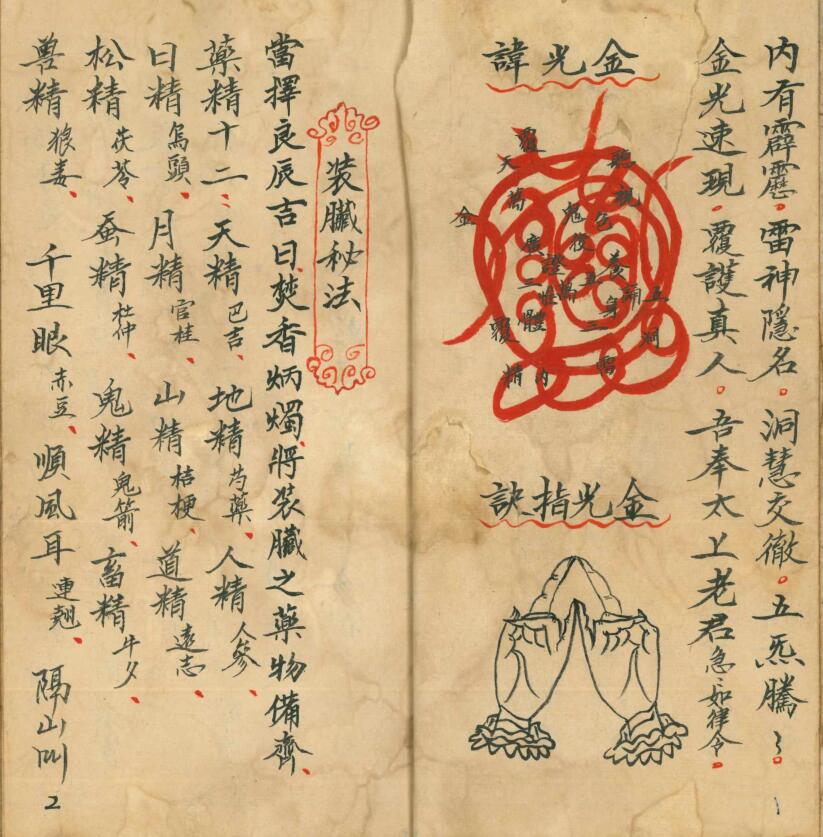 内有霹靂。雷神隱名。洞慧交徹。五炁騰〻。
金光速現。覆護真人。吾奉太上老君急〻如律令。
金光諱
金光指訣
1
裝臟秘法
當擇良辰吉日、焚香炳燭、將裝臟之藥物備齊、
藥精十二：天精 巴吉、地精 芍藥、人精 人參、
日精 烏頭、月精 官桂、山精 桔梗、道精 遠志、
松精 茯苓、蚕精 杜仲、鬼精 鬼箭、畜精 牛夕、
兽精 狼毒、千里眼 赤豆、順風耳 連翹、隔山叫
2